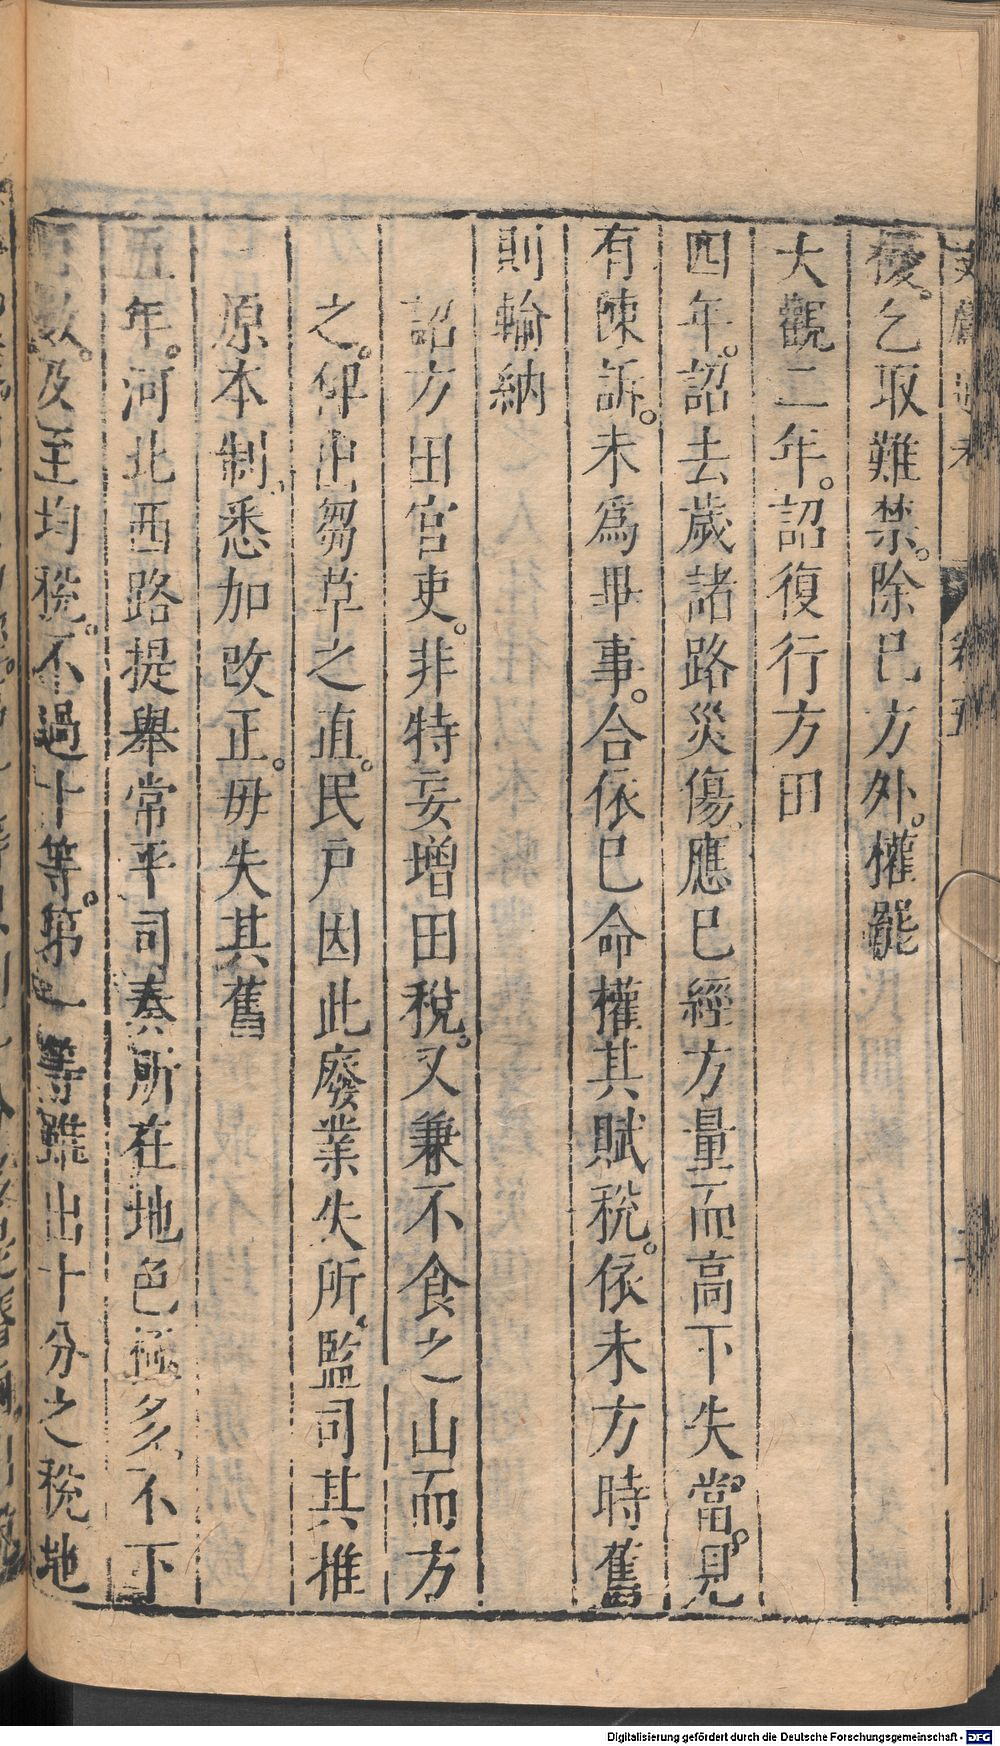 文獻通考 卷五
優乞取難禁除已方外權罷
大觀二年詔復行方田
四年詔去歲諸路災傷應已經方量而高下失當見
有陳訴未爲畢事合依已命權其賦稅依未方時舊
則輸納
詔方田官吏非特妄增田稅又兼不食之山而方
之俾出芻草之直民戶因此廢業失所監司其推
原本制悉加改正毋失其舊
五年河北西路提舉常平司奏所在地色極多不下
百數及至均稅不過十等第一等雖出十分之稅地
Digitalisierung gefördert durch die Deutsche Forschungsgemeinschaft - DFG